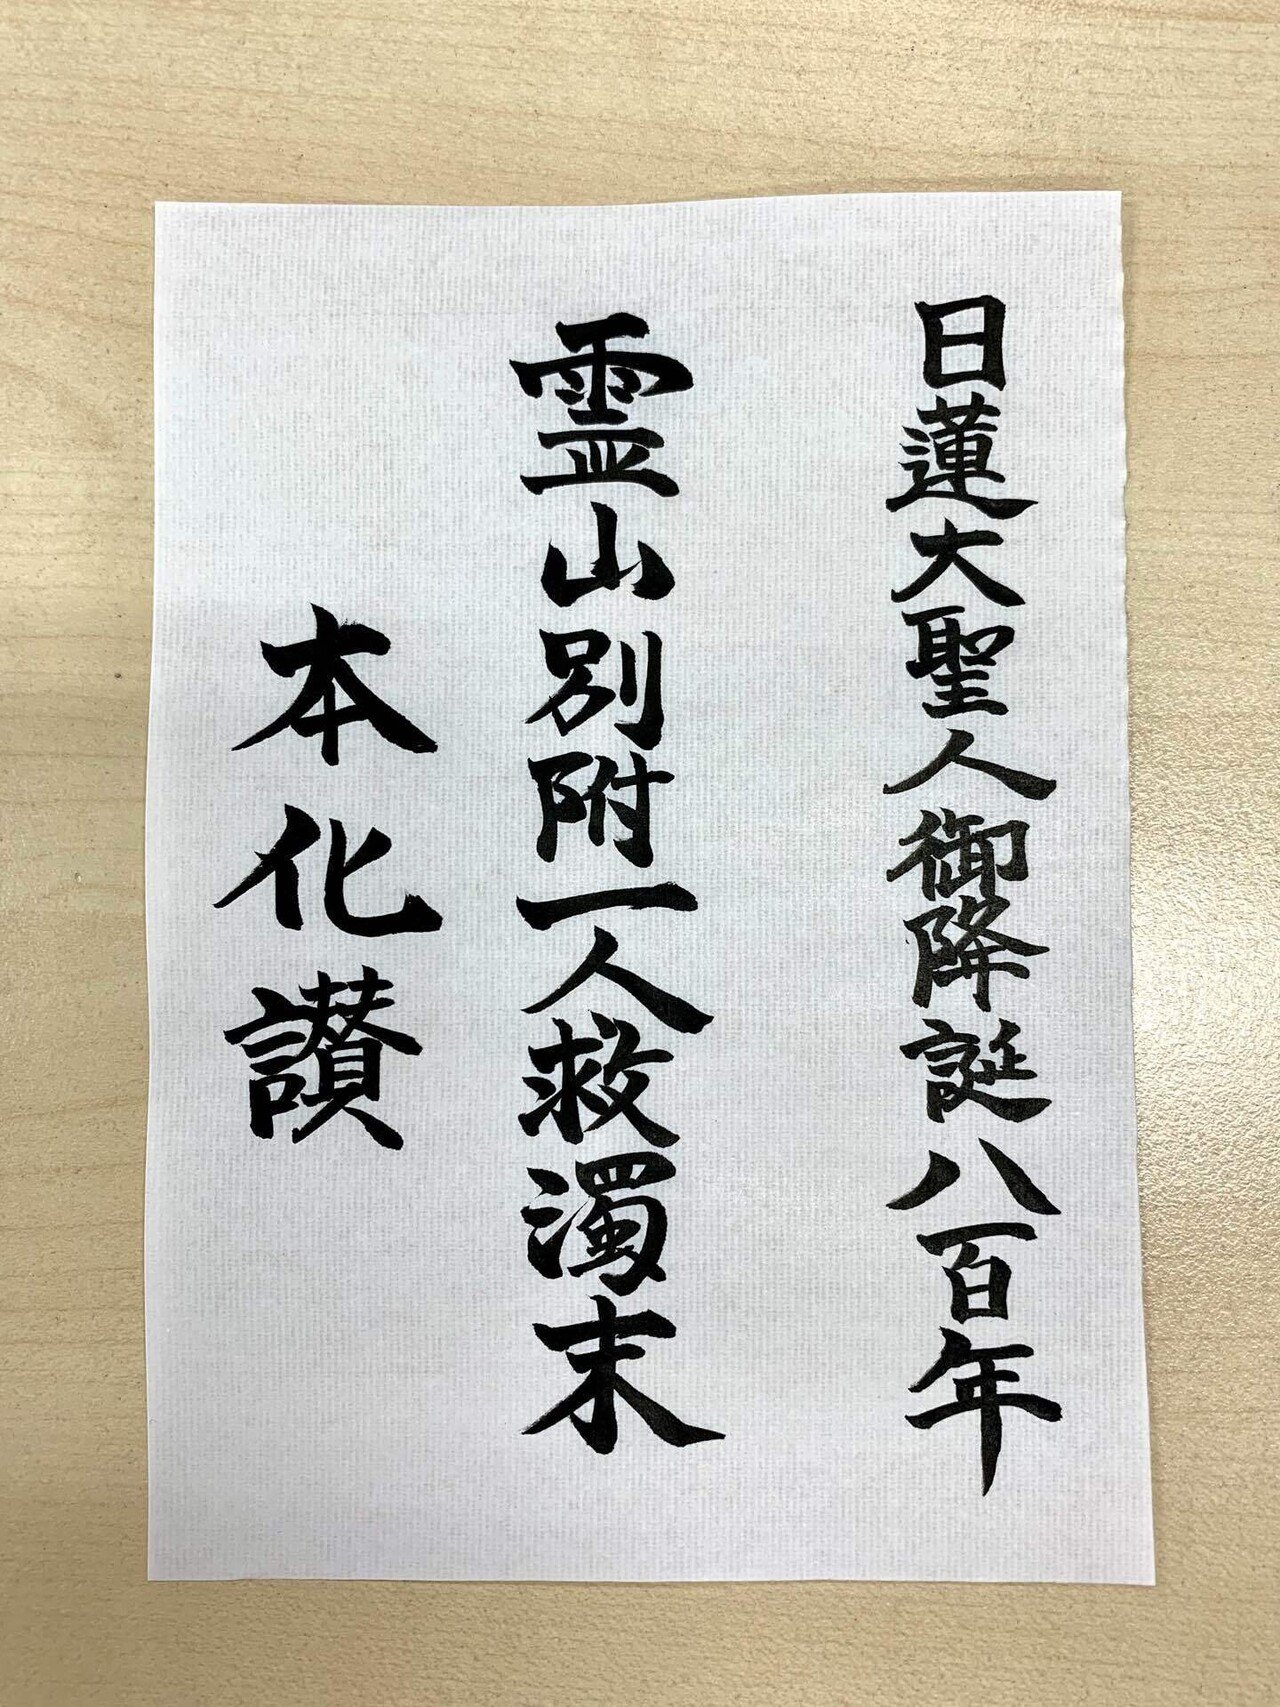 日蓮大聖人御降誕八百年
霊山別附一人救濁末
本化讃